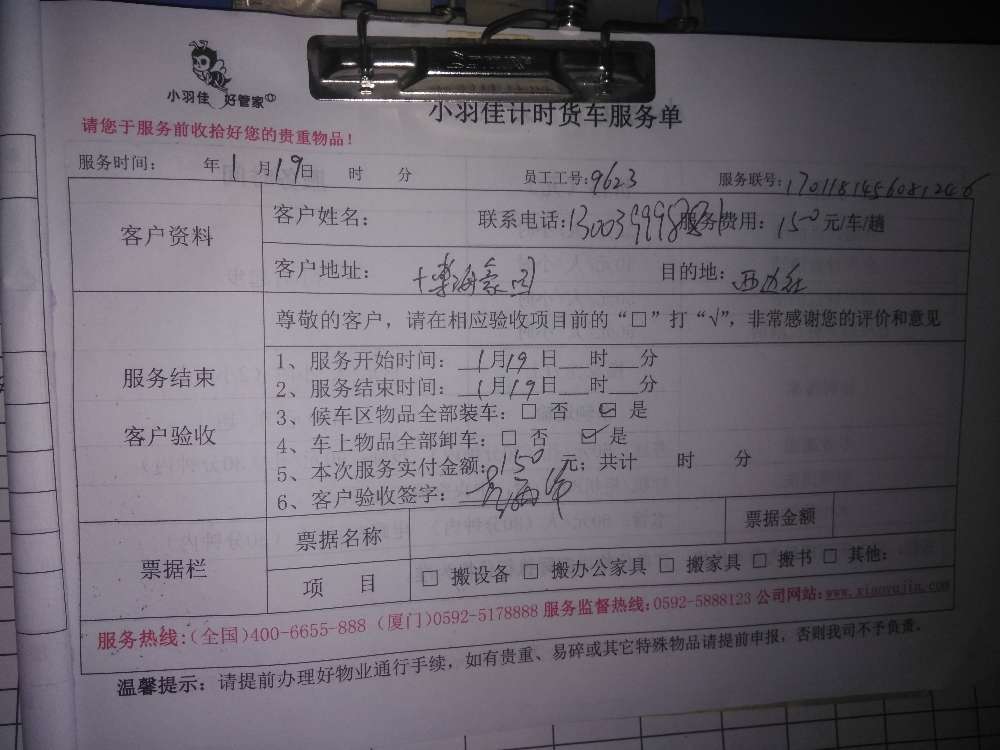 小羽佳 好管家
小羽佳计时货车服务单
请您于服务前收拾好您的贵重物品!
服务时间: 年1月19日 时 分 员工工号:9623 服务联号:1701181456081246
客户资料
客户姓名: 联系电话: 服务费用:150元/车/趟
客户地址: 目的地:
服务结束
客户验收
尊敬的客户,请在相应验收项目前的“□”打“√”,非常感谢您的评价和意见
1、服务开始时间:1月19日 时 分
2、服务结束时间:1月19日 时 分
3、候车区物品全部装车:□ 否 ☑ 是
4、车上物品全部卸车:□ 否 ☑ 是
5、本次服务实付金额:150 元;共计 时 分
6、客户验收签字:
票据栏
票据名称 票据金额
项 目 □ 搬设备 □ 搬办公家具 □ 搬家具 □ 搬书 □ 其他:
服务热线:(全国)400-6655-888 (厦门)0592-5178888 服务监督热线:0592-5888123 公司网站:www.xiaoyujia.com
温馨提示:请提前办理好物业通行手续,如有贵重、易碎或其它特殊物品请提前申报,否则我司不予负责.